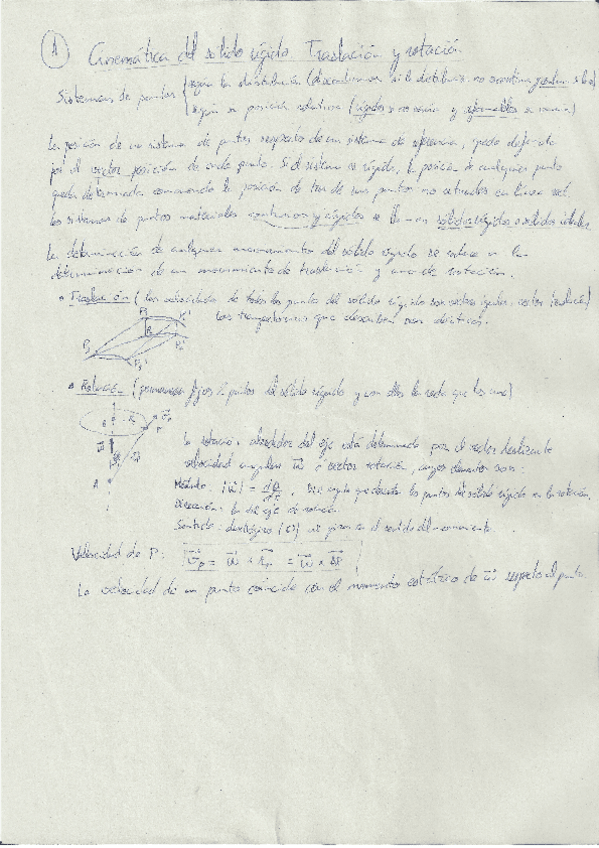 1 Cinemática del sólido rígido. Traslación y rotación
Sistemas de puntos según la distribución (discontinuos si la distribución no es continua, continuos si lo es)
según su posición relativa (rígidos si no varía y deformables si varía)
La posición de un sistema de puntos respecto de un sistema de referencia, queda definida
por el vector posición de cada punto. Si el sistema es rígido, la posición de cualquier punto
queda determinada conociendo la posición de tres de sus puntos no situados en línea recta.
Los sistemas de puntos materiales continuos y rígidos se llaman sólidos rígidos o sólidos
La determinación de cualquier movimiento del sólido rígido se reduce a la
determinación de un movimiento de traslación y uno de rotación.
• Traslación (las velocidades de todos los puntos del sólido rígido son vectores iguales, vector traslación)
Las trayectorias que describen son idénticas.
• Rotación (permanecen fijos 2 puntos del sólido rígido y con ellos la recta que los une)
La rotación alrededor del eje está determinada por el vector deslizante
velocidad angular w o vector rotación, cuyos elementos son:
Módulo: |w| = dθ/dt, ángulo que describen los puntos del sólido rígido en la rotación.
Dirección: la del eje de rotación.
Sentido:
Velocidad de P: v_P = w × r_P = w × AP
La velocidad de un punto coincide con el momento de w respecto al punto.